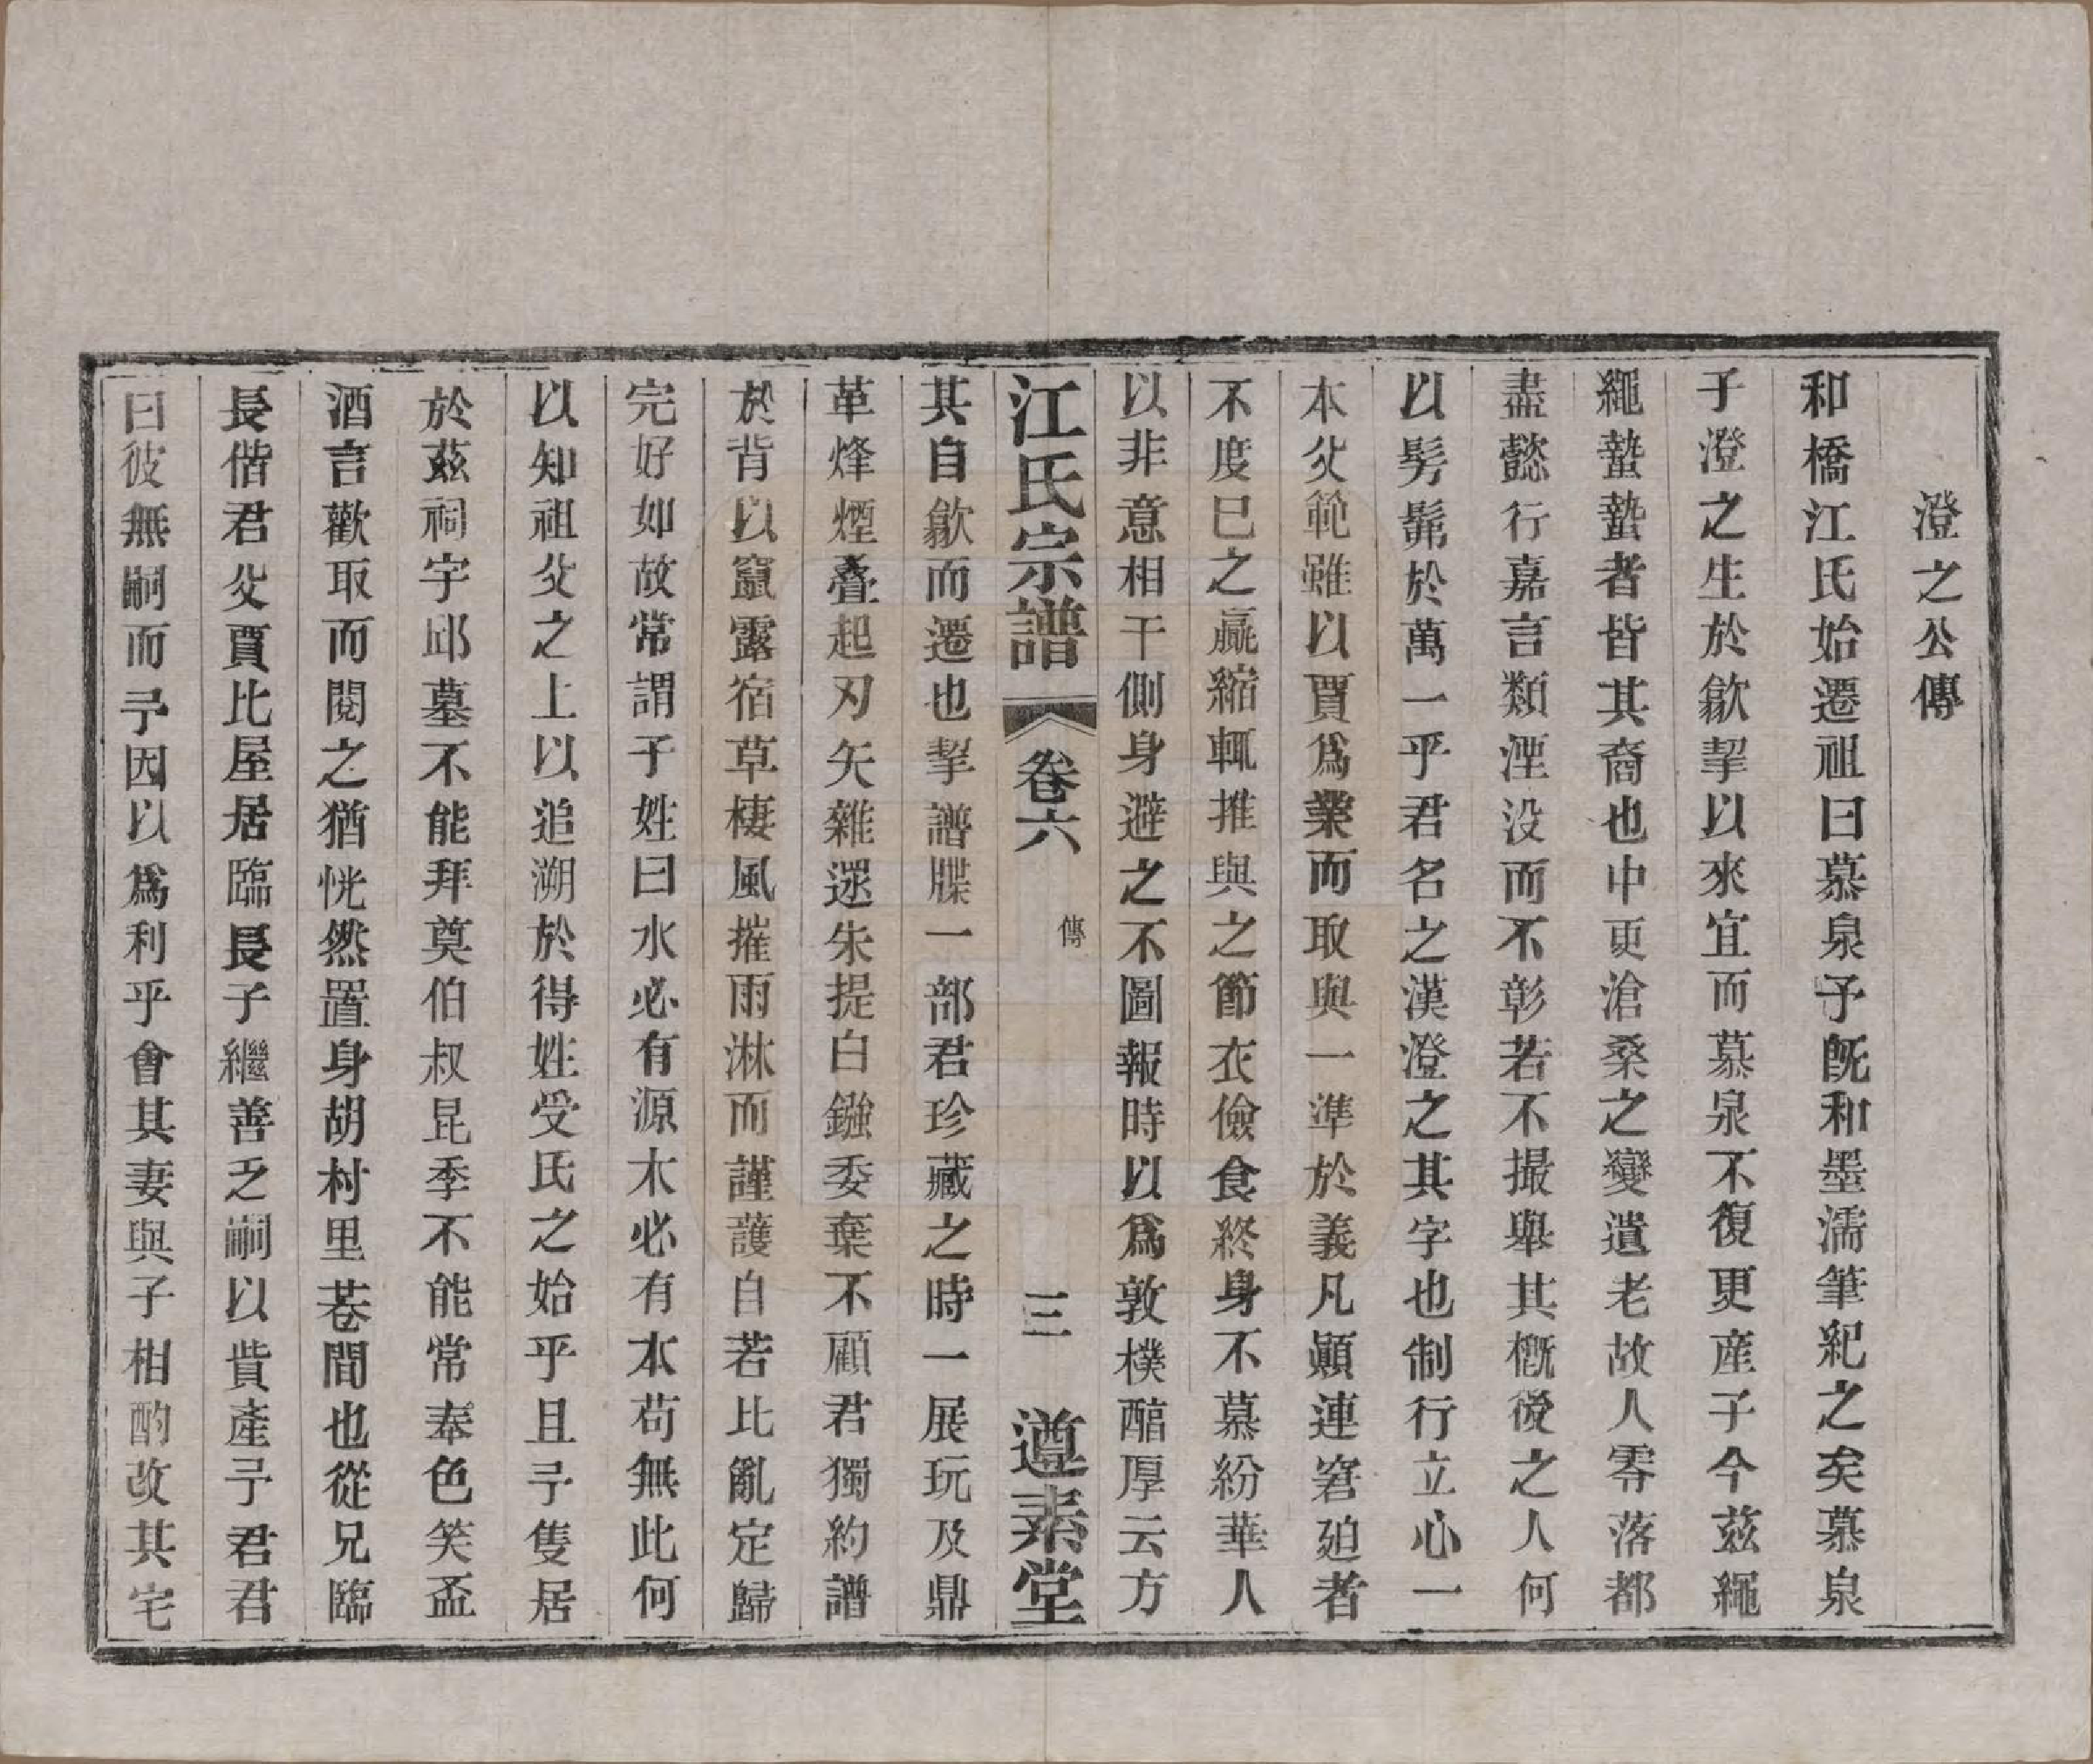 澄之公傳
和橋江氏始遷祖曰慕泉予既和墨濡筆紀之矣慕泉
子澄之生於歙挈以來宜而慕泉不復更產子今茲繩
繩蟄蟄者皆其裔也中更滄桑之變遺老故人零落都
盡懿行嘉言類湮没而不彰若不撮舉其概後之人何
以髣髴於萬一乎君名之漢澄之其字也制行立心一
本父範雖以賈爲業而取與一準於義凡顚連窘廹者
不度已之贏縮輒推與之節衣儉食終身不慕紛華人
以非意相干側身避之不圖報時以爲敦樸醕厚云方
江氏宗譜 卷六 傳 三 遵素堂
其自歙而遷也挈譜牒一部君珍藏之時一展玩及鼎
革烽煙叠起刃矢雜遝朱提白鏹委棄不顧君獨約譜
於背以竄露宿草棲風摧雨淋而謹護自若比亂定歸
完好如故常謂子姓曰水必有源木必有本苟無此何
以知祖父之上以追溯於得姓受氏之始乎且孑隻居
於茲祠宇邱墓不能拜奠伯叔昆季不能常奉色笑盃
酒言歡取而閱之猶恍然置身胡村里巷間也從兄臨
長偕君父賈比屋居臨長子繼善乏嗣以貲產予君君
曰彼無嗣而予因以爲利乎會其妻與子相酌改其宅